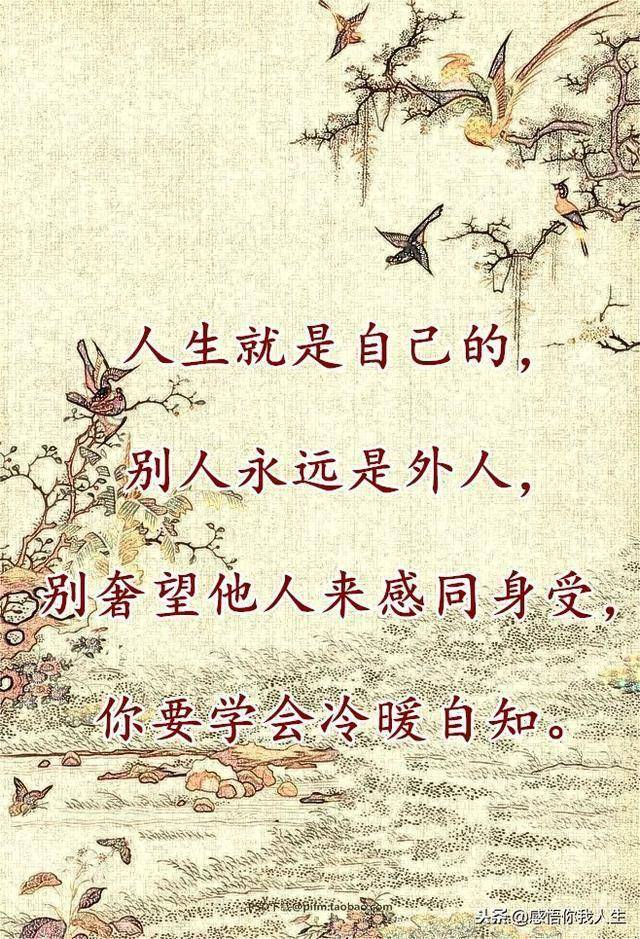 人生就是自己的，
别人永远是外人，
别奢望他人来感同身受，
你要学会冷暖自知。
PSD下载@pifm.taobao.com
头条@感悟你我人生